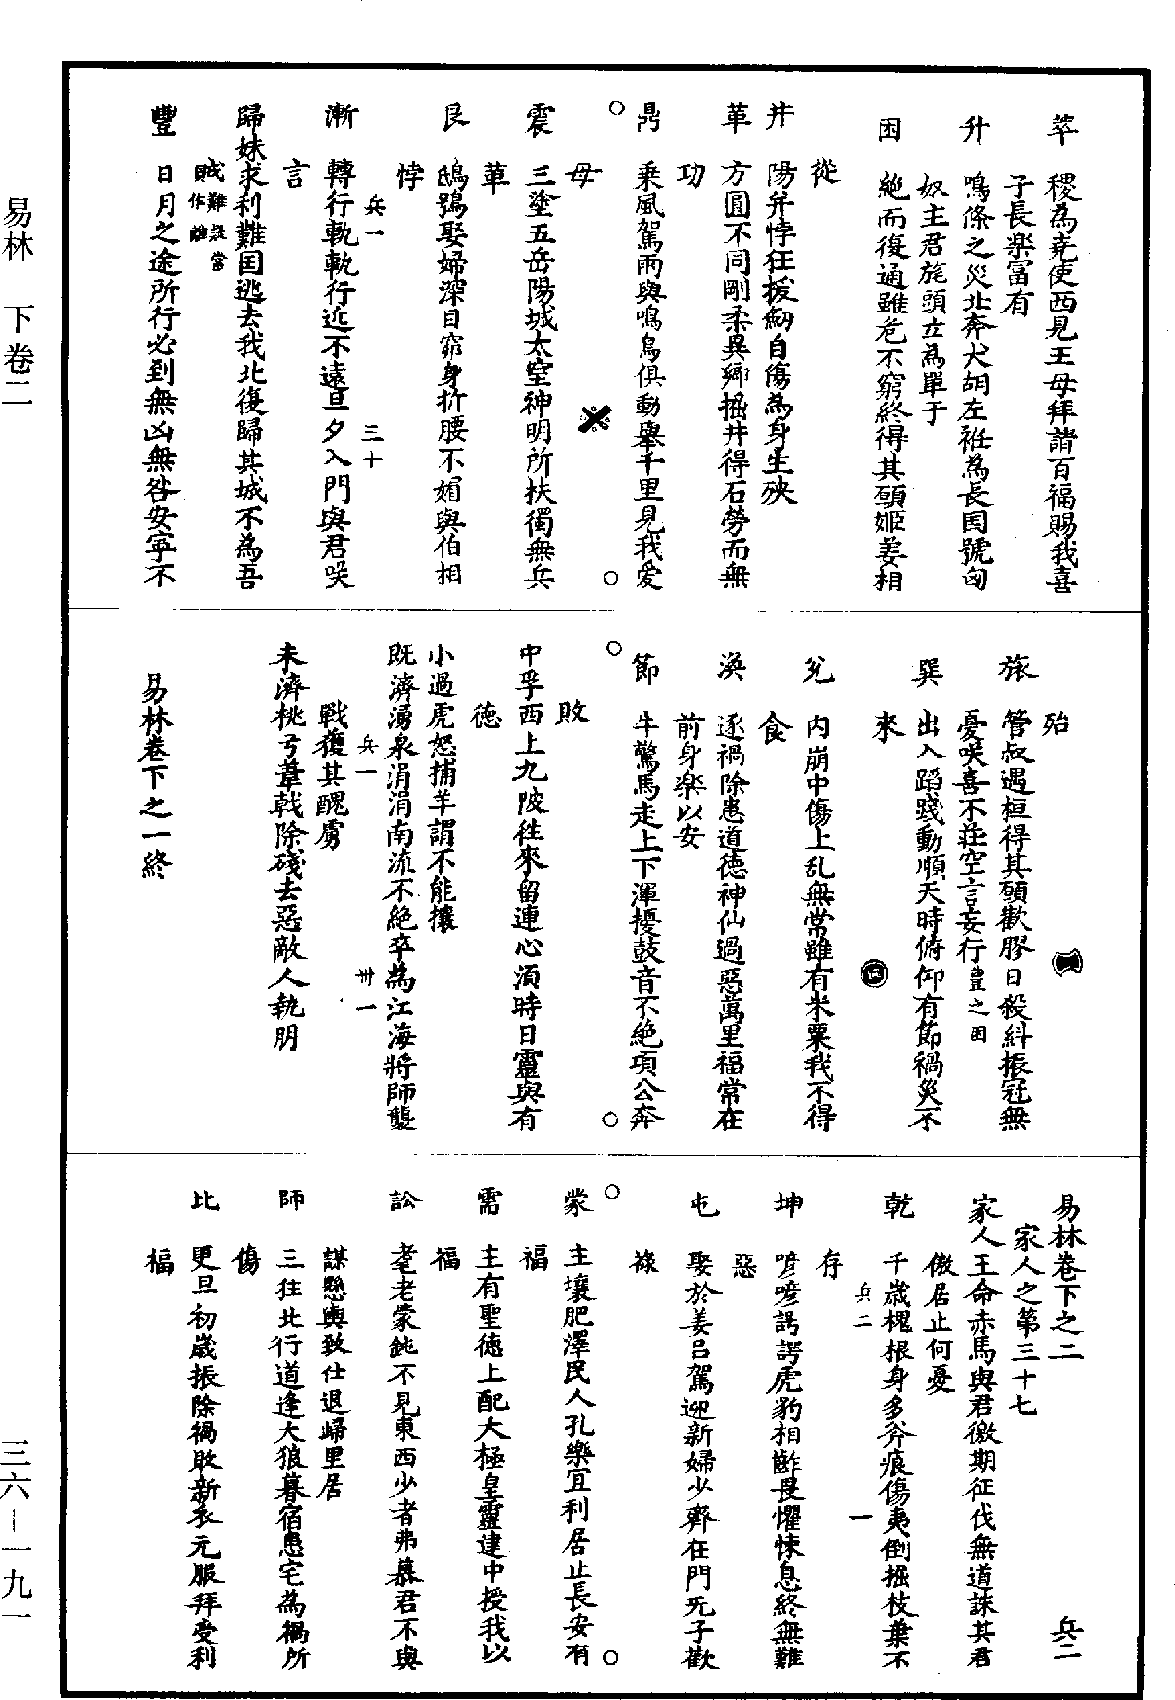 易林 下卷二
三六－一九一
萃 稷為堯使西見王母拜請百福賜我喜
子長樂富有
升 鳴條之災北奔犬胡左袵為長国號匈
奴主君旄頭立為單于
困 絶而復通雖危不窮終得其願姬姜相
從
井 陽井悖狂拔劔自傷為身生殃
革 方圓不同剛柔異鄉掘井得石勞而無
功
鼎 乘風駕雨與鳴鳥俱動舉千里見我愛
母
震 三塗五岳陽城太室神明所扶獨無兵
革
艮 鴟鴞娶婦深目窈身折腰不媚與伯相
悖
兵一 三十
漸 轉行軌軌行近不遠旦夕入門與君咲
言
歸妹求利難国逃去我北復歸其城不為吾
豐 日月之途所行必到無凶無咎安寧不
殆
旅 管叔遇桓得其願歡膠日殺糾振冠無
憂咲喜不莊空言妄行豊之困
巽 出入蹈踐動順天時俯仰有節禍災不
来
兌 内崩中傷上乱無常雖有米粟我不得
食
渙 逐禍除患道德神仙過惡萬里福常在
前身楽以安
節 牛驚馬走上下渾擾鼓音不絶項公奔
敗
中孚西上九陂往來留連心湏時日靈與有
德
小過虎怒捕羊謂不能攘
既濟湧泉涓涓南流不絶卒為江海將師襲
兵一 卅一
戰獲其醜虜
未濟桃弓葦戟除殘去惡敵人執朋
易林卷下之一終
易林卷下之二 兵二
家人之第三十七
家人王命赤馬與君徼期征伐無道誅其君
傲居止何憂
乾 千歳槐根身多斧痕傷夷倒掘枝葉不
兵二 一
存
坤 喭喭諤諤虎豹相齚畏懼悚息終無難
惡
屯 娶於姜吕駕迎新婦少齊在門旡子歡
祿
蒙 主壤肥澤民人孔樂宜利居止長安有
福
需 主有聖德上配大極皇靈建中授我以
福
訟 耄老蒙鈍不見東西少者弗慕君不與
謀懸輿致仕退歸里居
師 三往北行道逢大狼暮宿愚宅為禍所
傷
比 更旦初歳振除禍敗新衣元服拜受利
福